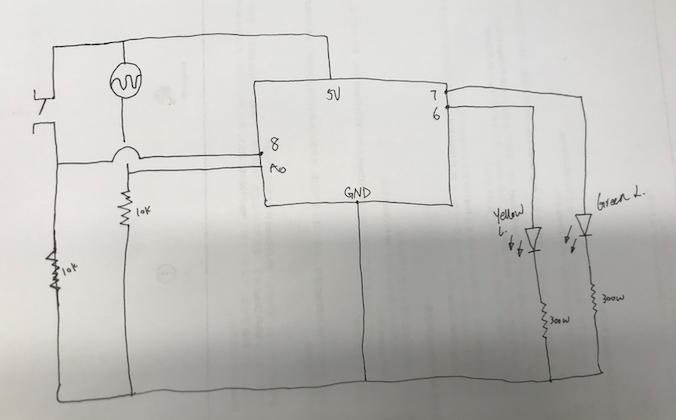 5V
7
6
8
A0
GND
10k
10k
Yellow
L.
Green L.
300w
300w